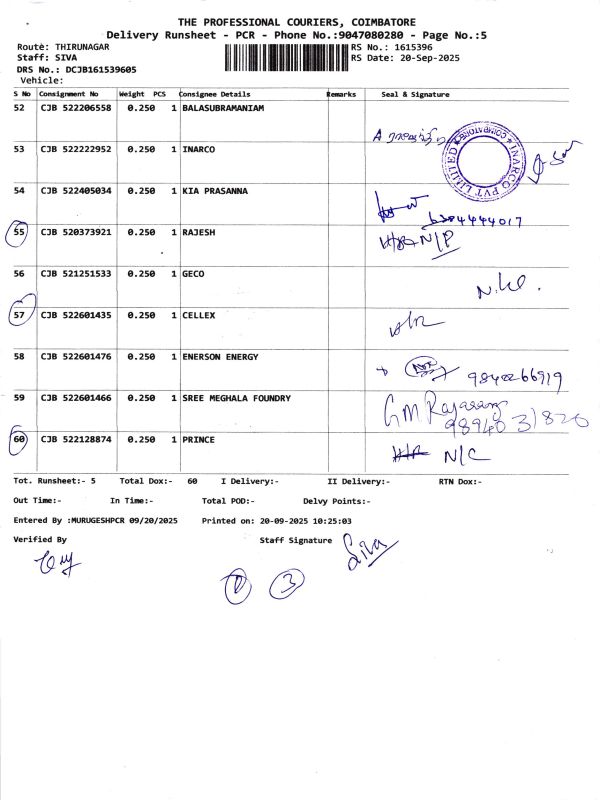 THE PROFESSIONAL COURIERS, COIMBATORE
Delivery Runsheet - PCR - Phone No.:9047080280 - Page No.:5
Route: THIRUNAGAR RS No.: 1615396
Staff: SIVA RS Date: 20-Sep-2025
DRS No.: DCJB161539605
Vehicle:
S No Consignment No Weight PCS Consignee Details Remarks Seal & Signature
52 CJB 522206558 0.250 1 BALASUBRAMANIAM
53 CJB 522222952 0.250 1 INARCO
INARCO PVT LIMITED COIMBATORE
54 CJB 522405034 0.250 1 KIA PRASANNA
6384444017
55 CJB 520373921 1 0.250 1 RAJESH N/P
56 CJB 521251533 0.250 1 GECO
57 CJB 522601435 0.250 1 CELLEX
58 CJB 522601476 0.250 1 ENERSON ENERGY
59 CJB 522601466 0.250 1 SREE MEGHALA FOUNDRY
G.M. Rajasang
98940 31820
60 CJB 522128874 0.250 1 PRINCE N/C
Tot. Runsheet:- 5 Total Dox:- 60 I Delivery:- II Delivery:- RTN Dox:-
Out Time:- In Time:- Total POD:- Delvy Points:-
Entered By :MURUGESHPCR 09/20/2025 Printed on: 20-09-2025 10:25:03
Verified By Staff Signature
Siva
3